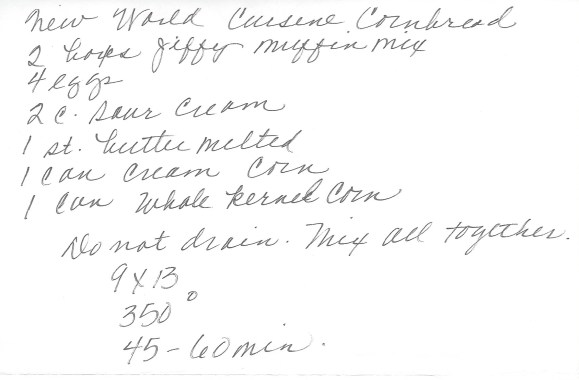 New World Cuisene Cornbread
2 boxes Jiffy muffin mix
4 eggs
2 c. sour cream
1 st. butter melted
1 can cream corn
1 can whole kernel corn
Do not drain. Mix all together.
9 x 13
350°
45-60 min.